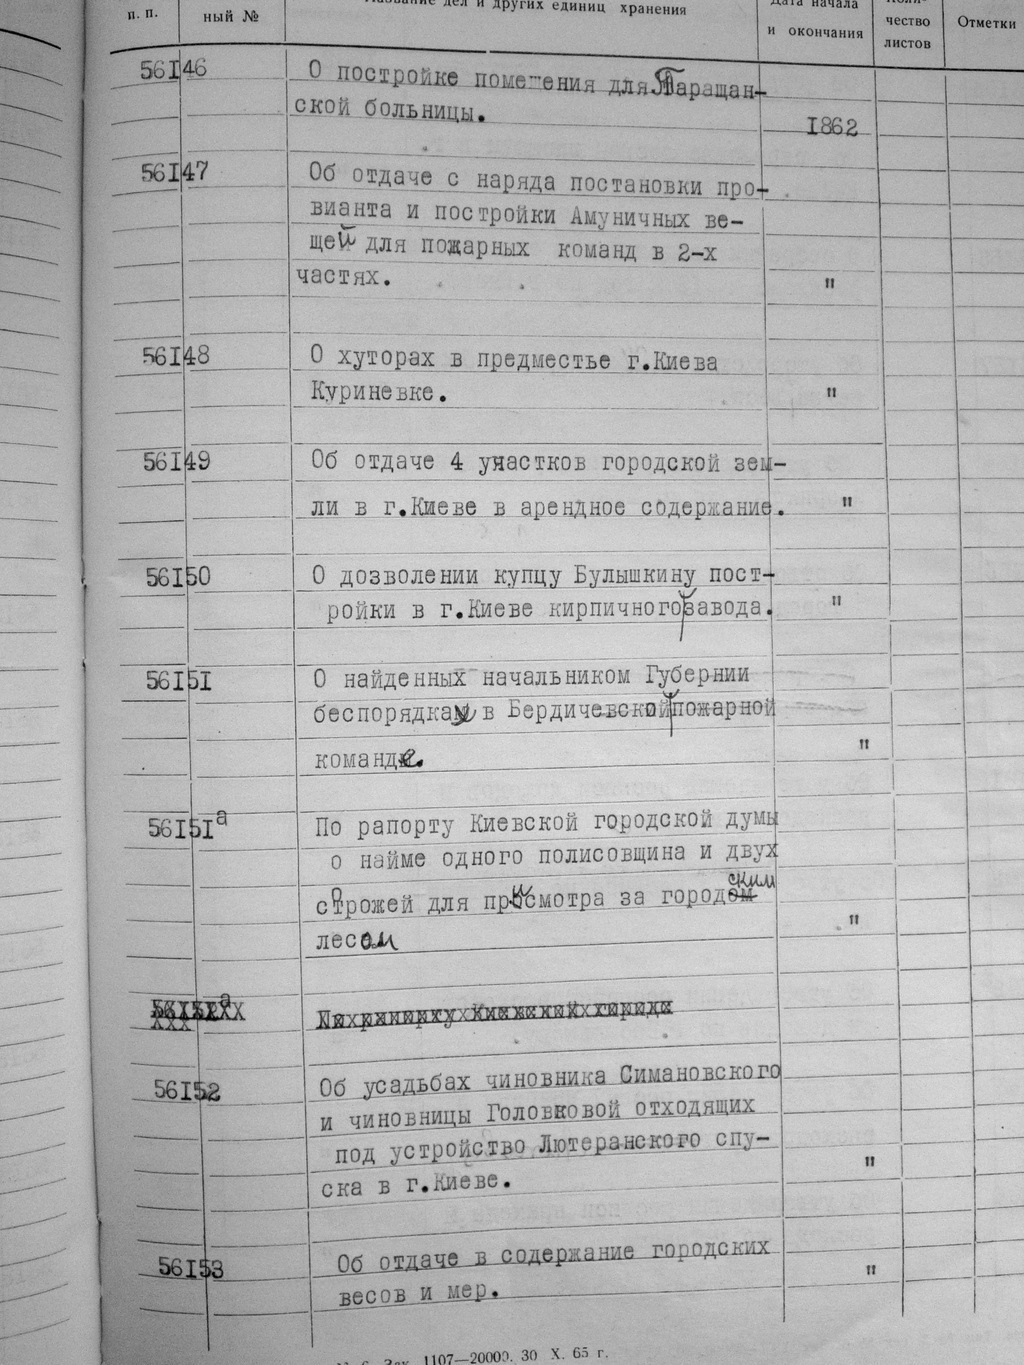 п. п.
ный №
Название дел и других единиц хранения
Дата начала
и окончания
Коли-
чество
листов
Отметки
56146 О постройке помещения для Таращан-
ской больницы.
1862
56147 Об отдаче с наряда постановки про-
вианта и постройки Амуничных ве-
щей для пожарных команд в 2-х
частях. "
56148 О хуторах в предместье г.Киева
Куриневке. "
56149 Об отдаче 4 участков городской зем-
ли в г.Киеве в арендное содержание. "
56150 О дозволении купцу Булышкину пост-
ройки в г.Киеве кирпичного завода. "
56151 О найденных начальником Губернии
беспорядках в Бердичевской пожарной
команде. "
56151а По рапорту Киевской городской думы
о найме одного полисовщина и двух
сторожей для присмотра за городским
лесом "
56152 Об усадьбах чиновника Симановского
и чиновницы Головковой отходящих
под устройство Лютеранского спу-
ска в г.Киеве. "
56153 Об отдаче в содержание городских "
весов и мер.
Зак. 1107—20000. 30 X. 65 г.